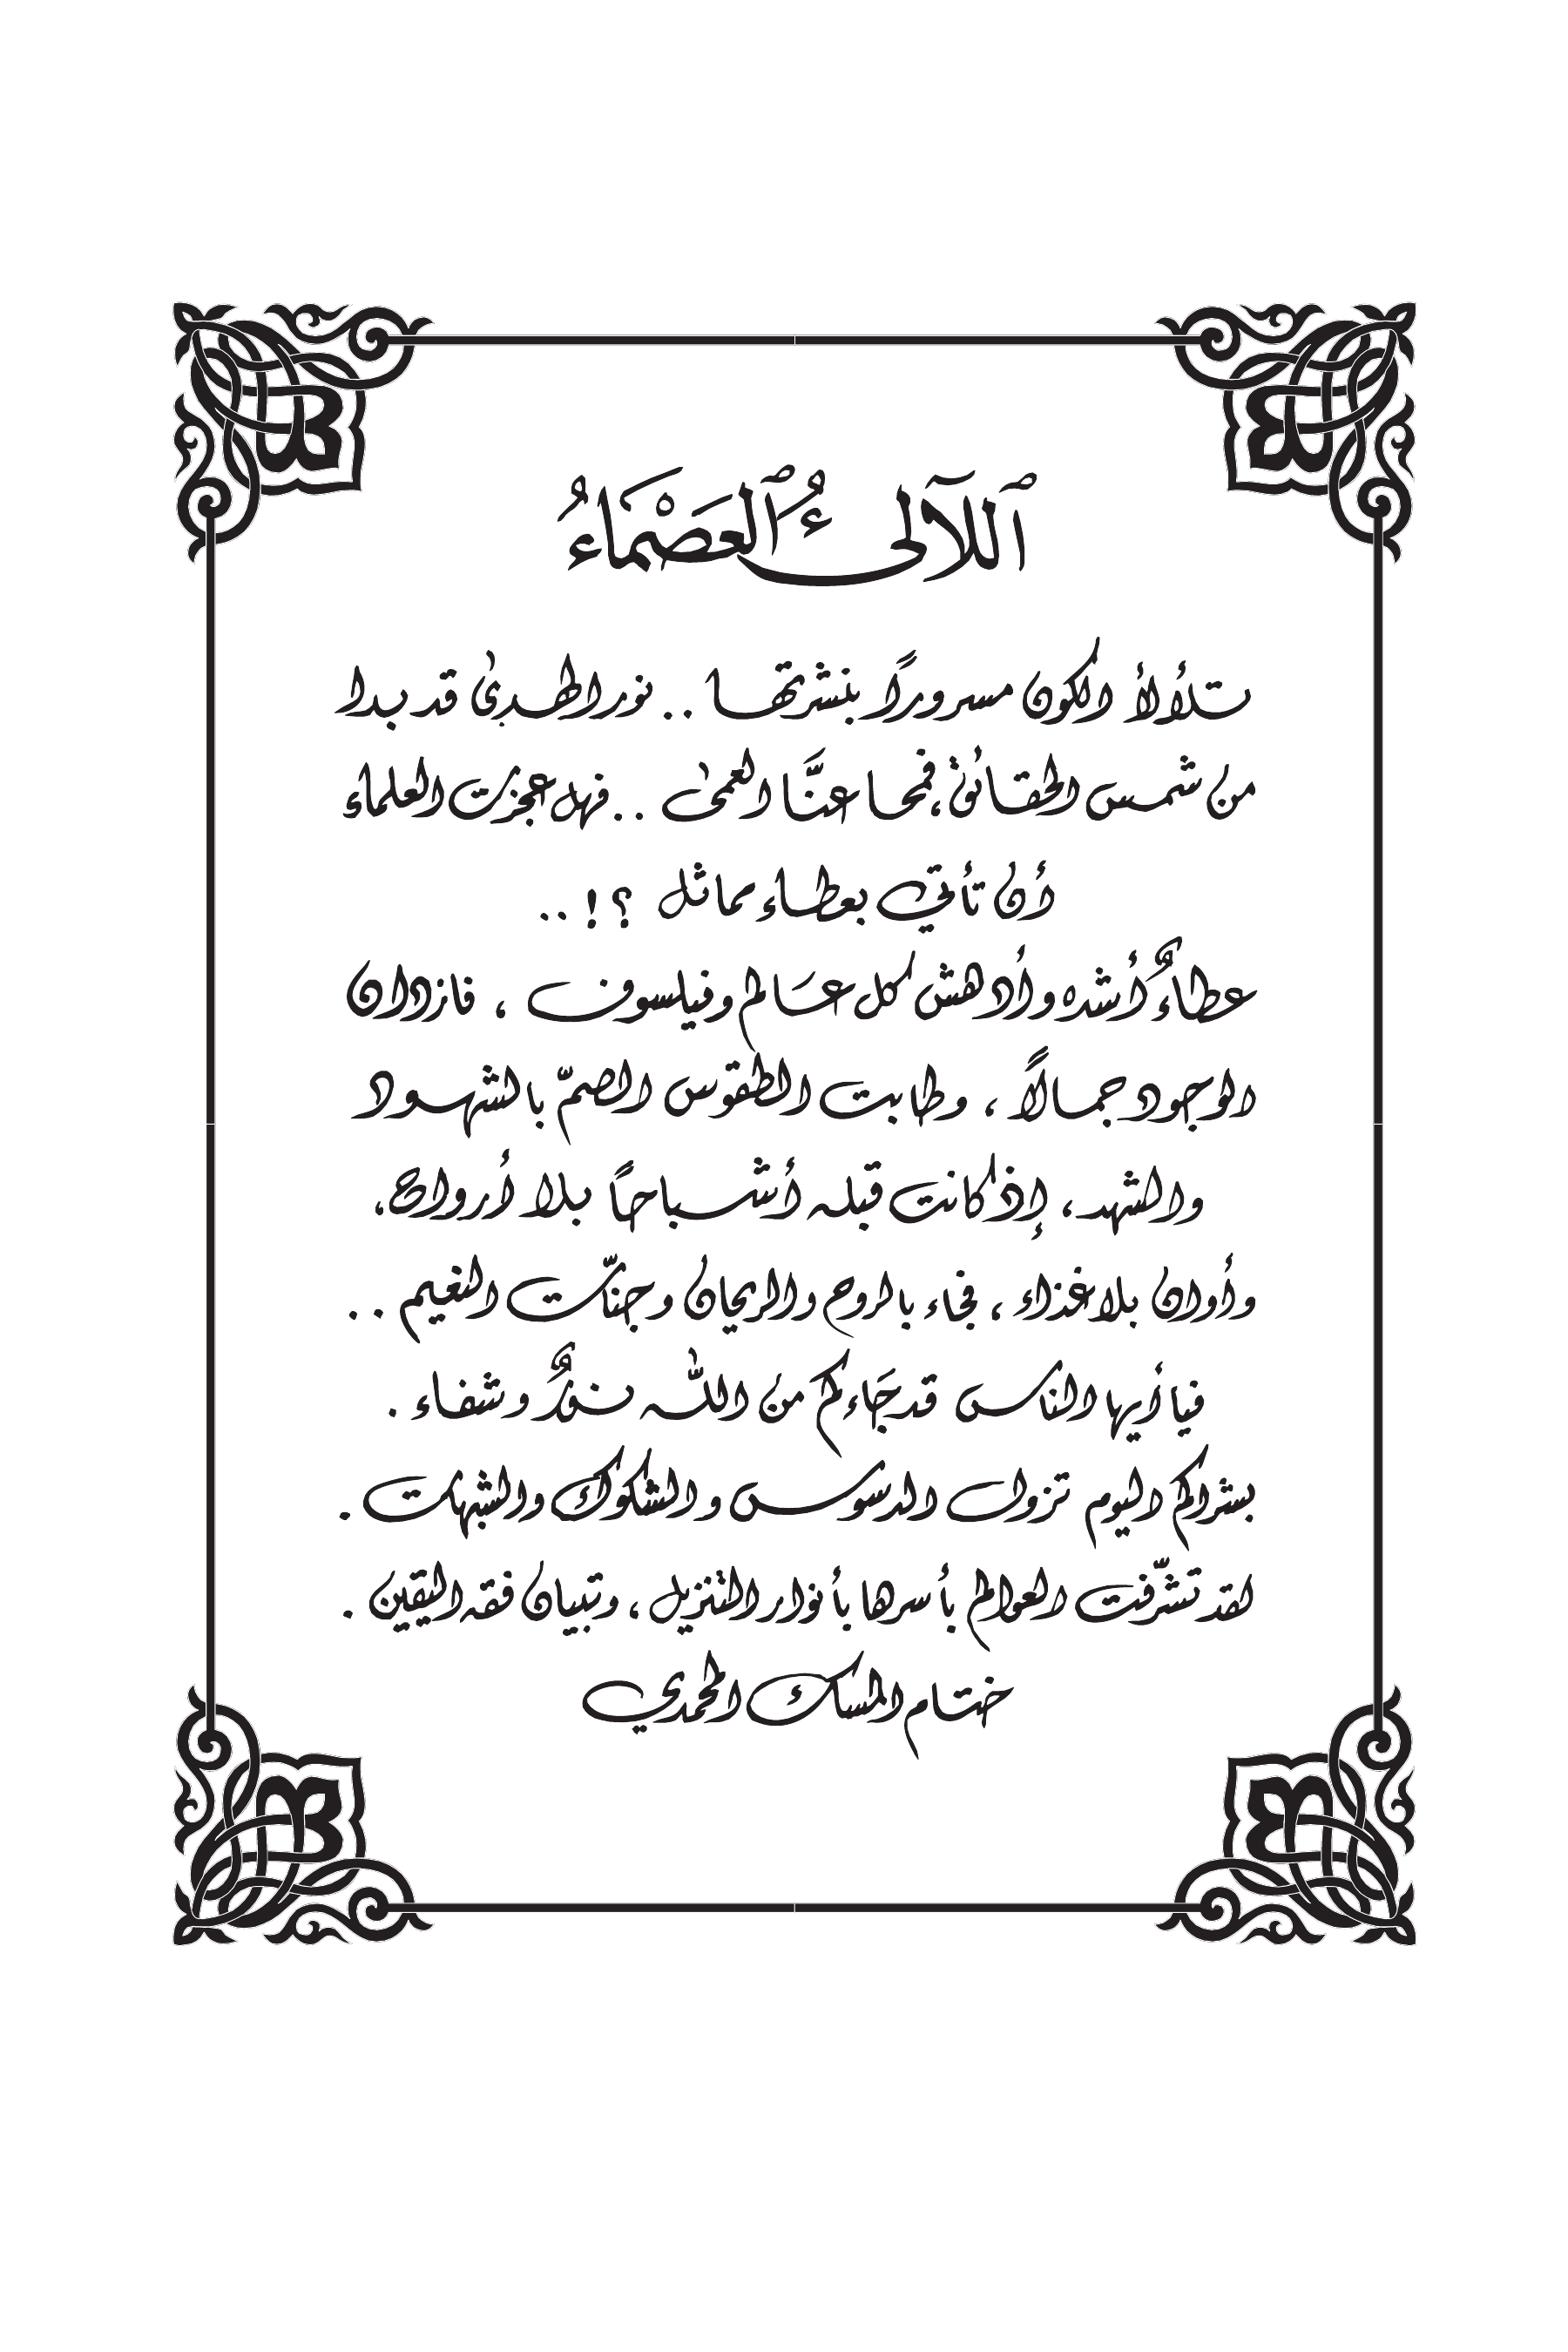 ٱللآلىءُ ٱلعَصْمَاءُ
تلألأ الكون مسروراً بنشرتها .. نور الهدىٰ قد بدا
من شمس الحقائق، فمحا عنَّا العمىٰ .. فهل عجزت العلماء
أن تأتي بعطاء مماثل ؟! ..
عطاءٌ أشده وأدهش كل عَالم وفيلسوف ، فازدان
الوجود جمالاً ، وطابت الطقوس الصمّ بالشهود
والشهد ، إذ كانت قبله أشباحاً بلا أرواح،
وأوان بلا غذاء ، فجاء بالروح والريحان وجنّات النعيم ..
فيا أيها الناس قد جَاءكم من اللّٰه نورٌ وشفاء .
بشراكم اليوم تزول الدسوس والشكوك والشبهات .
لقد تشرّفت العوالم بأسرها بأنوار التنزيل ، وتبيان فقه اليقين .
ختام المسك المحمدي